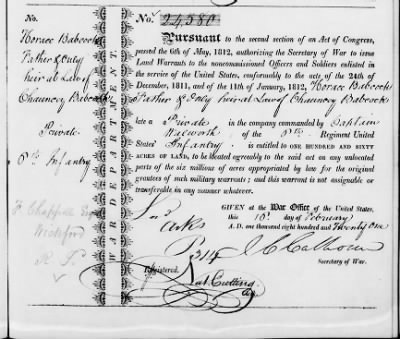 No. No. 24,580
Horace Babcock
Father & Only
heir at Law of
Chauncy Babcock
Private
6th Infantry
F. Chappell Esq
R. I.
WAR DEPARTMENT.
Pursuant to the second section of an Act of Congress,
passed the 6th of May, 1812, authorizing the Secretary of War to issue
Land Warrants to the noncommissioned Officers and Soldiers enlisted
in the service of the United States, conformably to the acts of the 24th of
December, 1811, and of the 11th of January, 1812, Horace Babcock
Father & Only heir at Law of Chauncy Babcock
late a Private in the company commanded by Captain
of the 6th Regiment United
States' Infantry is entitled to ONE HUNDRED AND SIXTY
ACRES OF LAND, to be located agreeably to the said act on any unlocated
parts of the six millions of acres appropriated by law for the original
grantees of such military warrants; and this warrant is not assignable or
transferable in any manner whatever.
GIVEN at the War Office of the United States,
this 10th day of February
A. D. one thousand eight hundred and Twenty One
Arks
P 314
J C Calhoun
Secretary of War.
Registered.
Nat Cutting